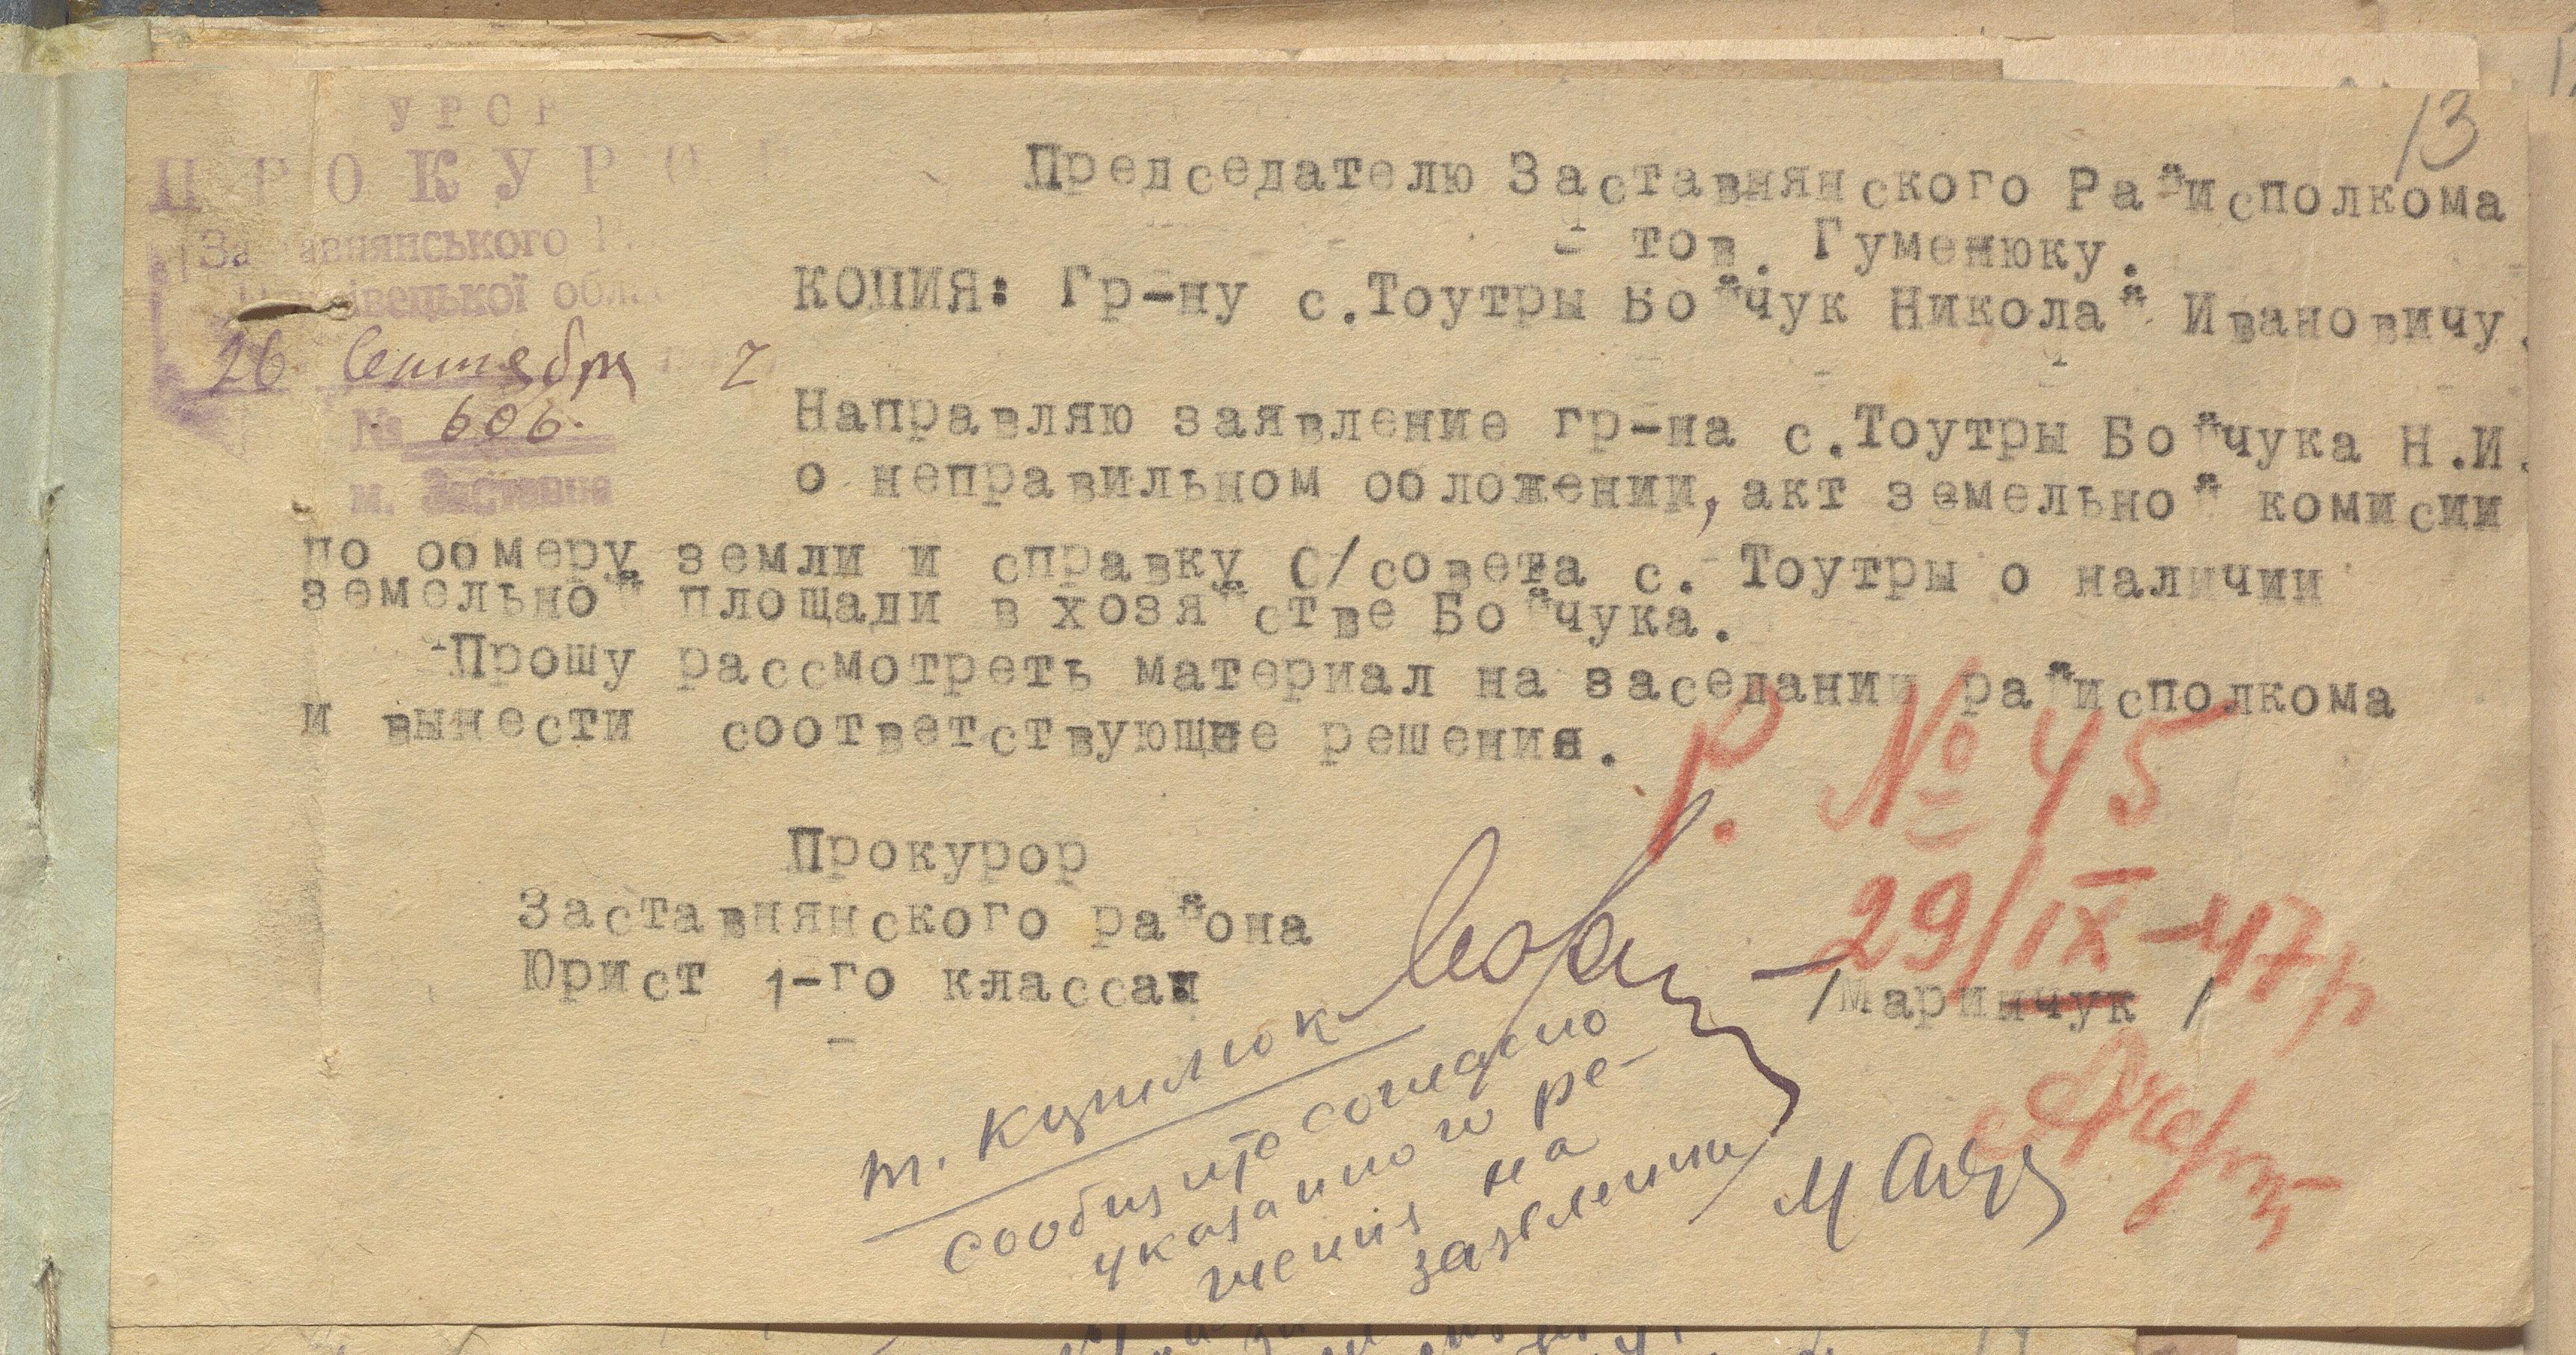 13
УРСР
ПРОКУРОР
Заставнянського
Чернівецької обл
26 Сентября 7
№ 606.
м. Заставна
Председателю Заставнянского Райисполкома
тов. Гуменюку.
КОПИЯ: Гр-ну с.Тоутры Бойчук Николай Ивановичу.
Направляю заявление гр-на с.Тоутры Бойчука Н.И.
о неправильном обложении, акт земельной комисии
по обмеру земли и справку С/совета с. Тоутры о наличии
земельной площади в хозяйстве Бойчука.
Прошу рассмотреть материал на заседании райисполкома
и вынести соответствующее решения.
Р. № 45
29/IX-47р
Прокурор
Заставнянского района
Юрист 1-го класса
/Маринчук /
т.
сообщите согласно
указанного ре-
шения на
заявлении